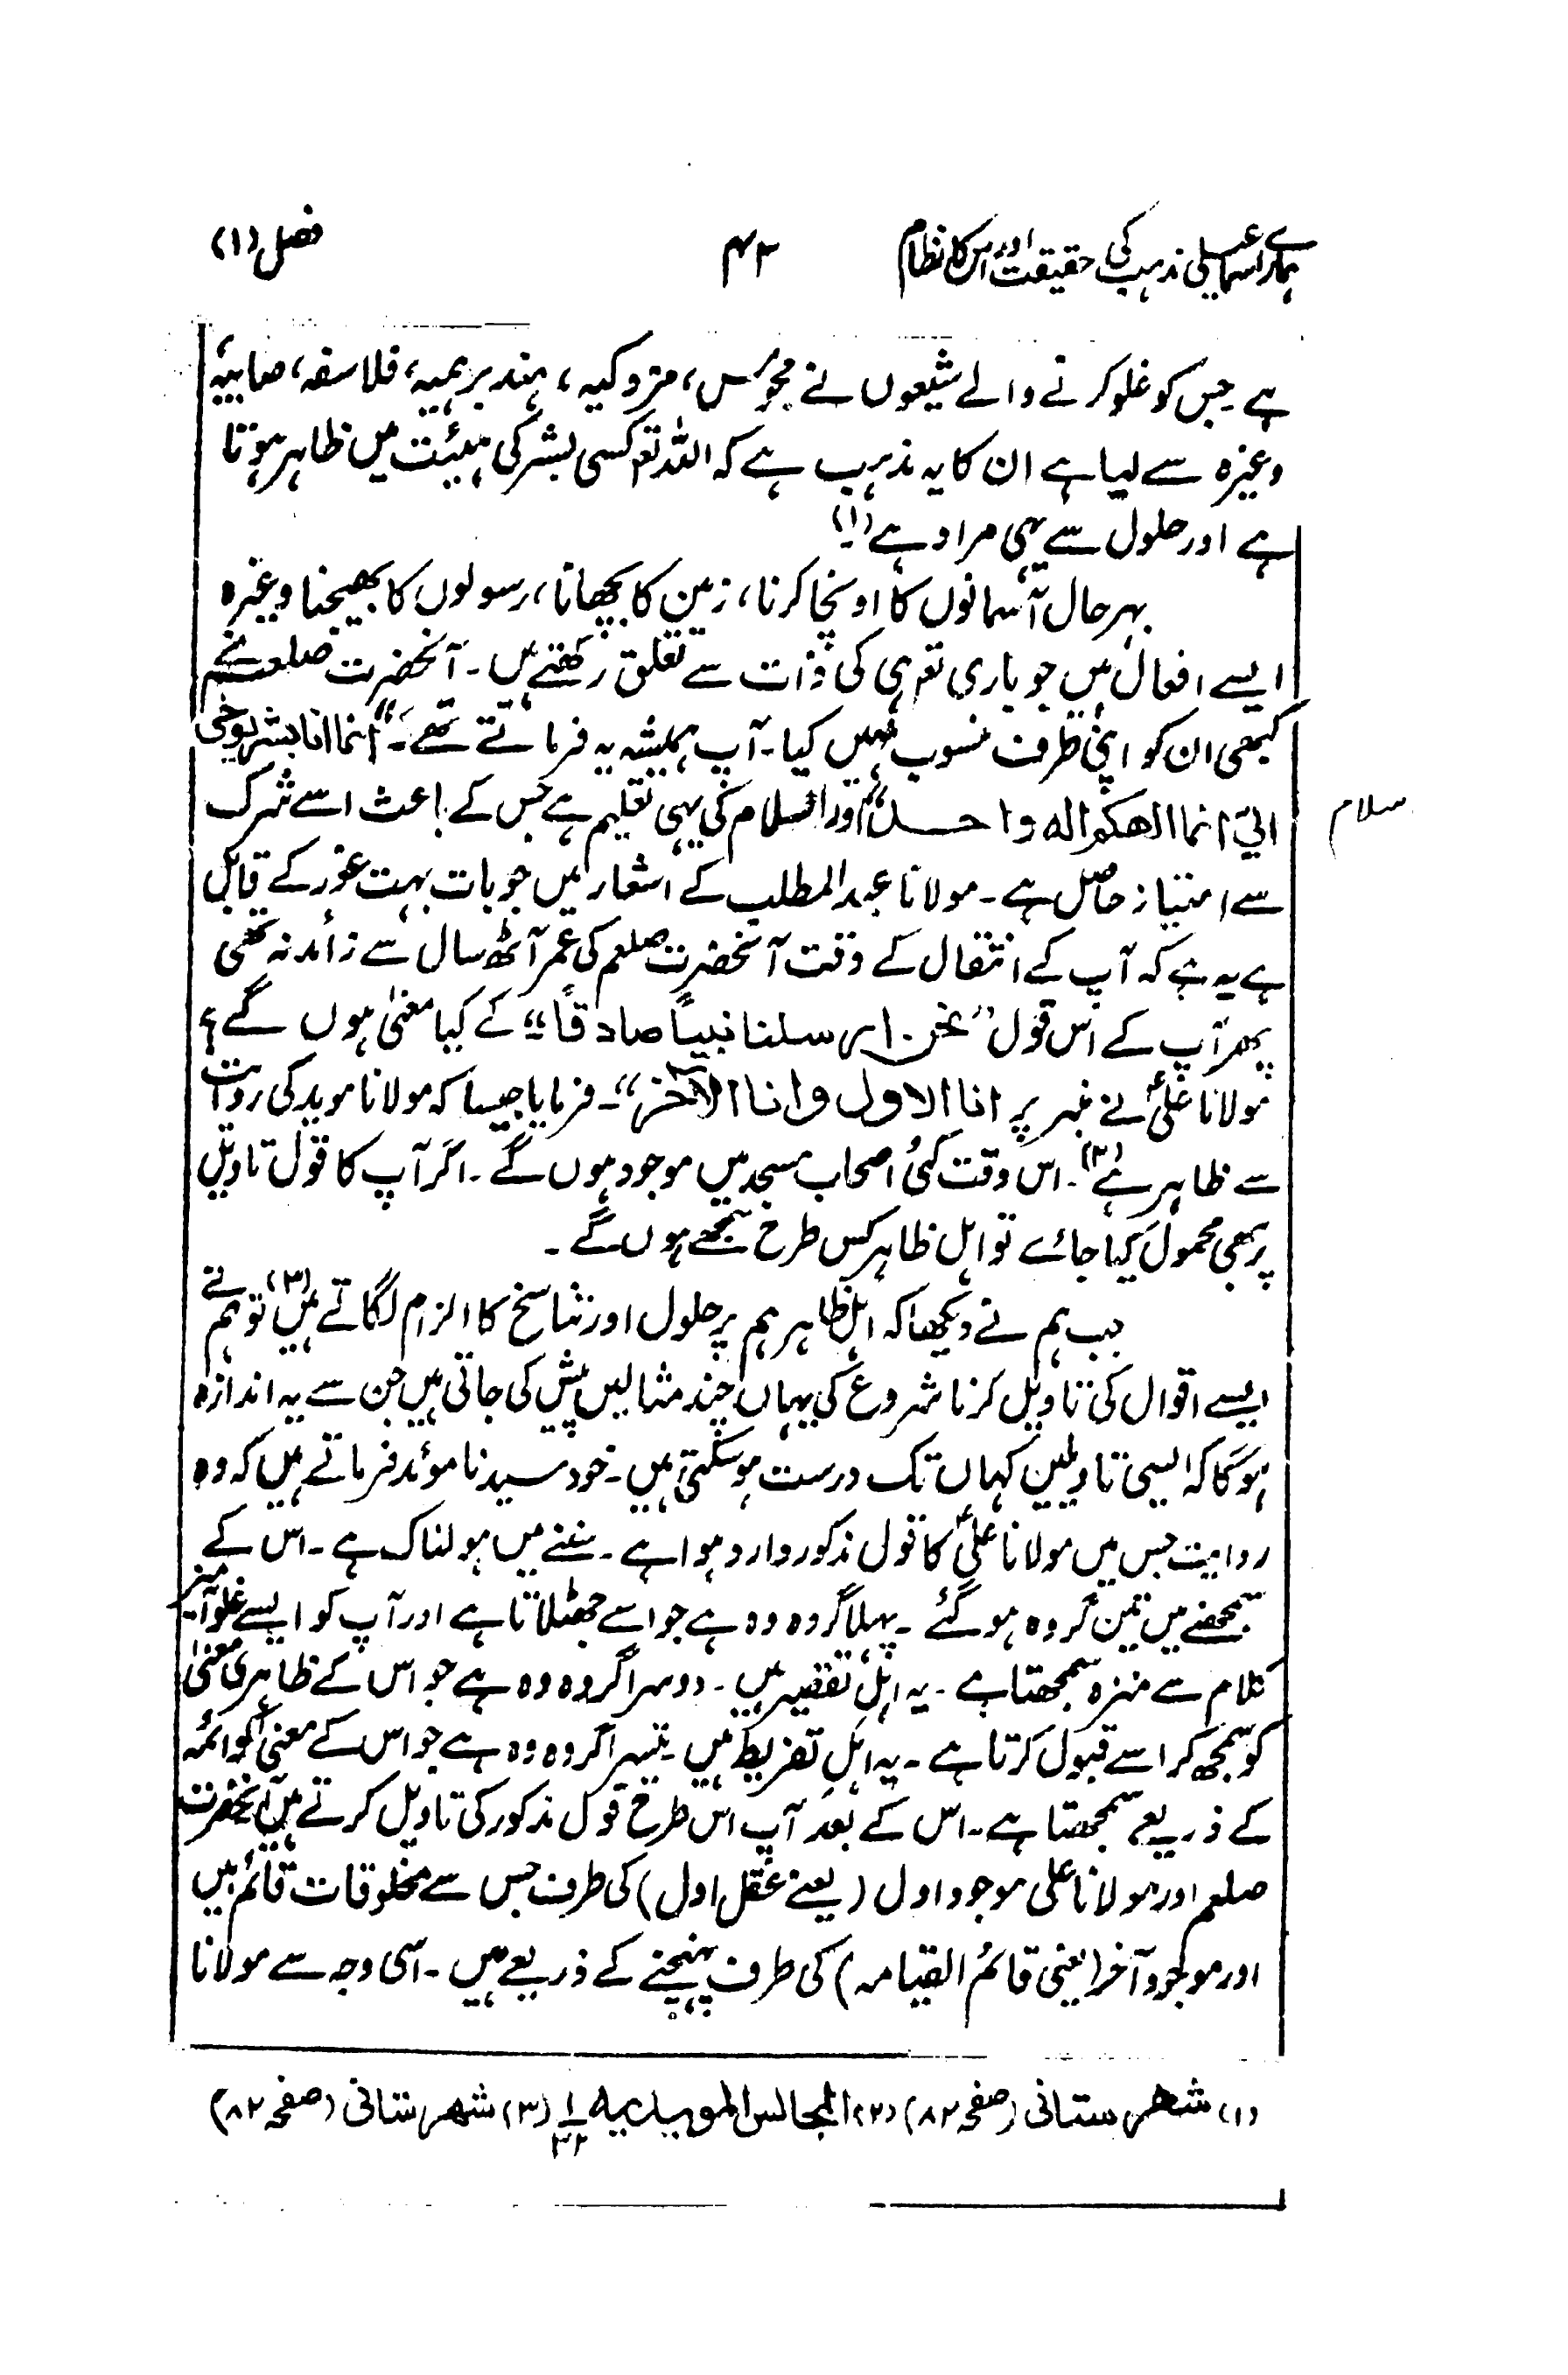 ہمارے اسماعیلی مذہب کی حقیقت اور اس کا نظام ۴۳ فصل (۱)
ہے جس کو غلو کرنے والے شیعوں نے مجوس، مزوکیہ، ہند برہمیہ، فلاسفہ، صابیہ
وغیرہ سے لیا ہے ان کا یہ مذہب ہے کہ اللہ تعم کسی بشر کی ہیئت میں ظاہر ہوتا
ہے اور حلول سے یہی مراد ہے (۱)
بہر حال آسمانوں کا اونچا کرنا، زمین کا بچھانا، رسولوں کا بھیجنا وغیرہ
ایسے افعال ہیں جو باری تعم ہی کی ذات سے تعلق رکھتے ہیں۔ آنحضرت صلعم نے
کبھی ان کو اپنی طرف منسوب نہیں کیا۔ آپ ہمیشہ یہ فرماتے تھے۔ "انما انا بشر یوحی
الیّ انما الھکم الہ واحد" اور اسلام کی یہی تعلیم ہے جس کے باعث اسے شرک
سلام
سے امتیاز حاصل ہے۔ مولانا عبد المطلب کے اشعار میں جو بات بہت غور کے قابل
ہے یہ ہے کہ آپ کے انتقال کے وقت آنحضرت صلعم کی عمر آٹھ سال سے زائد نہ تھی
پھر آپ کے اس قول "نحن ارسلنا نبیاً صادقاً" کے کیا معنی ہوں گے؟
مولانا علیؑ نے منبر پر انا الاول وانا الآخر"۔ فرمایا جیسا کہ مولانا موید کی روایت
سے ظاہر ہے (۲)۔ اس وقت کئی اصحاب مسجد میں موجود ہوں گے۔ اگر آپ کا قول تاویل
پر بھی محمول کیا جائے تو اہل ظاہر کس طرح سمجھے ہوں گے۔
جب ہم نے دیکھا کہ اہل ظاہر ہم پر حلول اور تناسخ کا الزام لگاتے ہیں (۳) تو ہم نے
ایسے اقوال کی تاویل کرنا شروع کی یہاں چند مثالیں پیش کی جاتی ہیں جن سے یہ اندازہ
ہوگا کہ ایسی تاویلیں کہاں تک درست ہو سکتی ہیں۔ خود سیدنا موئد فرماتے ہیں کہ وہ
روایت جس میں مولانا علیؑ کا قول مذکور وارد ہوا ہے۔ سننے میں ہولناک ہے۔ اس کے
سمجھنے میں تین گروہ ہو گئے۔ پہلا گروہ وہ ہے جو اسے جھٹلاتا ہے اور آپ کو ایسے غلو آمیز
کلام سے منزہ سمجھتا ہے۔ یہ اہل تقصیر ہیں۔ دوسرا گروہ وہ ہے جو اس کے ظاہری معنی
کو سمجھ کر اسے قبول کرتا ہے۔ یہ اہل تفریط ہیں۔ تیسرا گروہ وہ ہے جو اس کے معنی کو ائمہ
کے ذریعے سمجھتا ہے۔ اس کے بعد آپ اس طرح قول مذکور کی تاویل کرتے ہیں آنحضرت
صلعم اور مولانا علی موجود اول (یعنے عقل اول) کی طرف جس سے مخلوقات قائم ہیں
اور موجود آخر (یعنی قائم القیامہ) کی طرف پہنچنے کے ذریعے ہیں۔ اسی وجہ سے مولانا
(۱) شھرستانی (صفحہ ۸۲) (۲) المجالس المویدیہ ۱/۳۲ (۳) شھرستانی (صفحہ ۸۲)